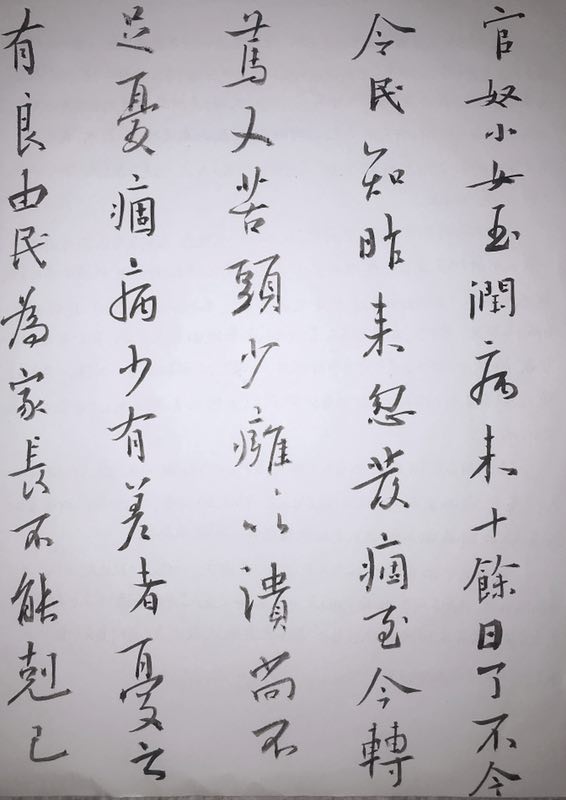 官奴小女玉潤病来十餘日了不令
令民知昨来忽發痼至今轉
篤又苦頭少癰以潰尚不
足憂痼病少有差者憂之
有良由民為家長不能剋己